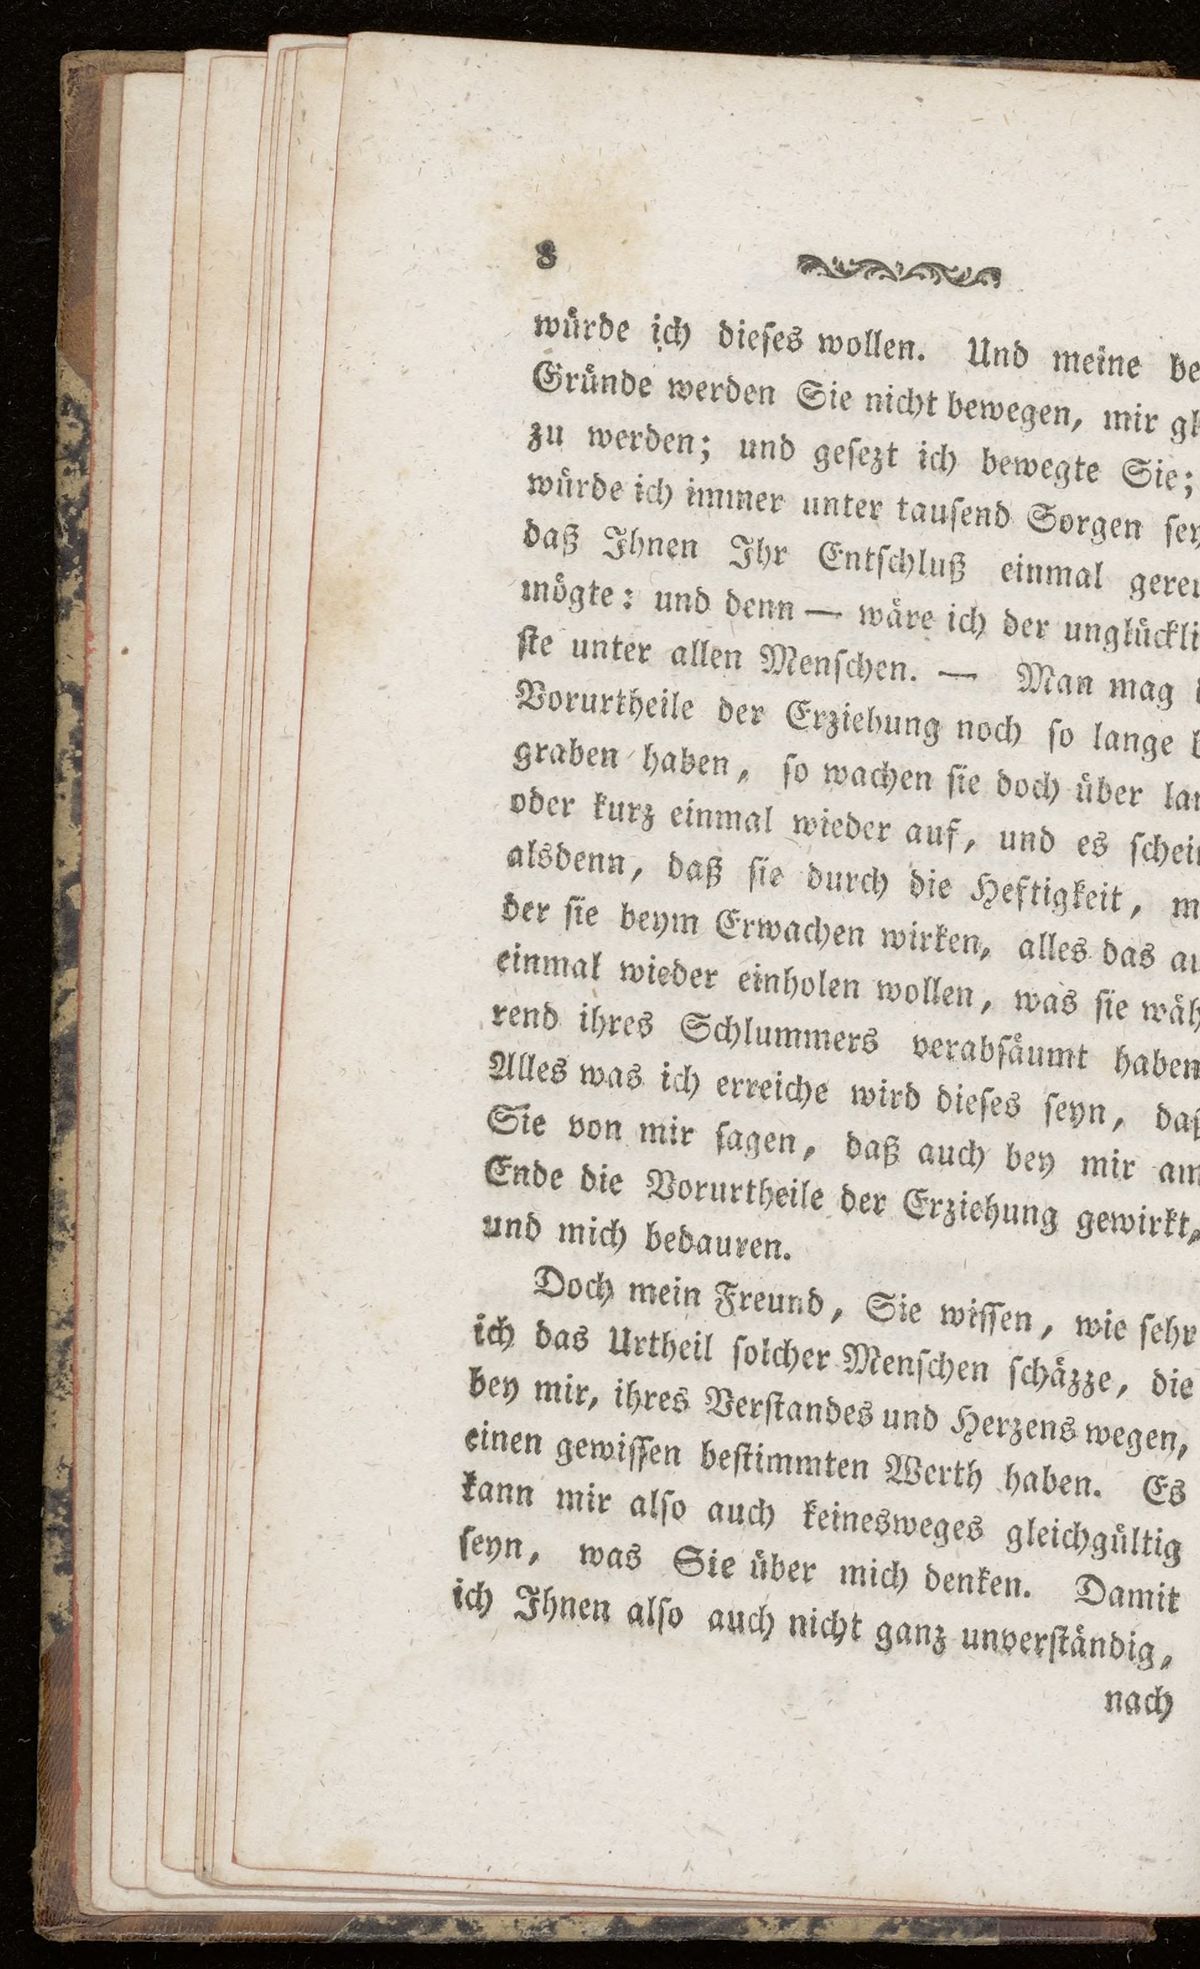 8
würde ich dieses wollen. Und meine be
Gründe werden Sie nicht bewegen, mir gl
zu werden; und gesezt ich bewegte Sie;
würde ich immer unter tausend Sorgen sey
daß Ihnen Ihr Entschluß einmal gereu
mögte: und denn — wäre ich der unglückli
ste unter allen Menschen. — Man mag
Vorurtheile der Erziehung noch so lange b
graben haben, so wachen sie doch über lan
oder kurz einmal wieder auf, und es schein
alsdenn, daß sie durch die Heftigkeit, m
der sie beym Erwachen wirken, alles das au
einmal wieder einholen wollen, was sie wäh
rend ihres Schlummers verabsäumt haben
Alles was ich erreiche wird dieses seyn, daß
Sie von mir sagen, daß auch bey mir am
Ende die Vorurtheile der Erziehung gewirkt,
und mich bedauren.
Doch mein Freund, Sie wissen, wie sehr
ich das Urtheil solcher Menschen schäzze, die
bey mir, ihres Verstandes und Herzens wegen,
einen gewissen bestimmten Werth haben. Es
kann mir also auch keinesweges gleichgültig
seyn, was Sie über mich denken. Damit
ich Ihnen also auch nicht ganz unverständig,
nach